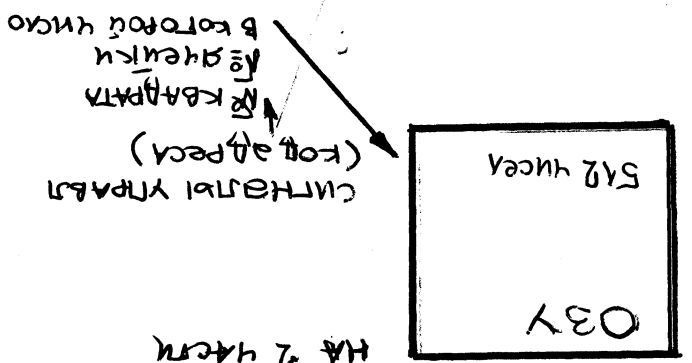 НА 2 ЧАСТИ
ОЗУ
512 чисел
СИГНАЛЫ УПРАВЛ
(код адреса)
№ КВАДРАТА
№ ячейки
в которой число